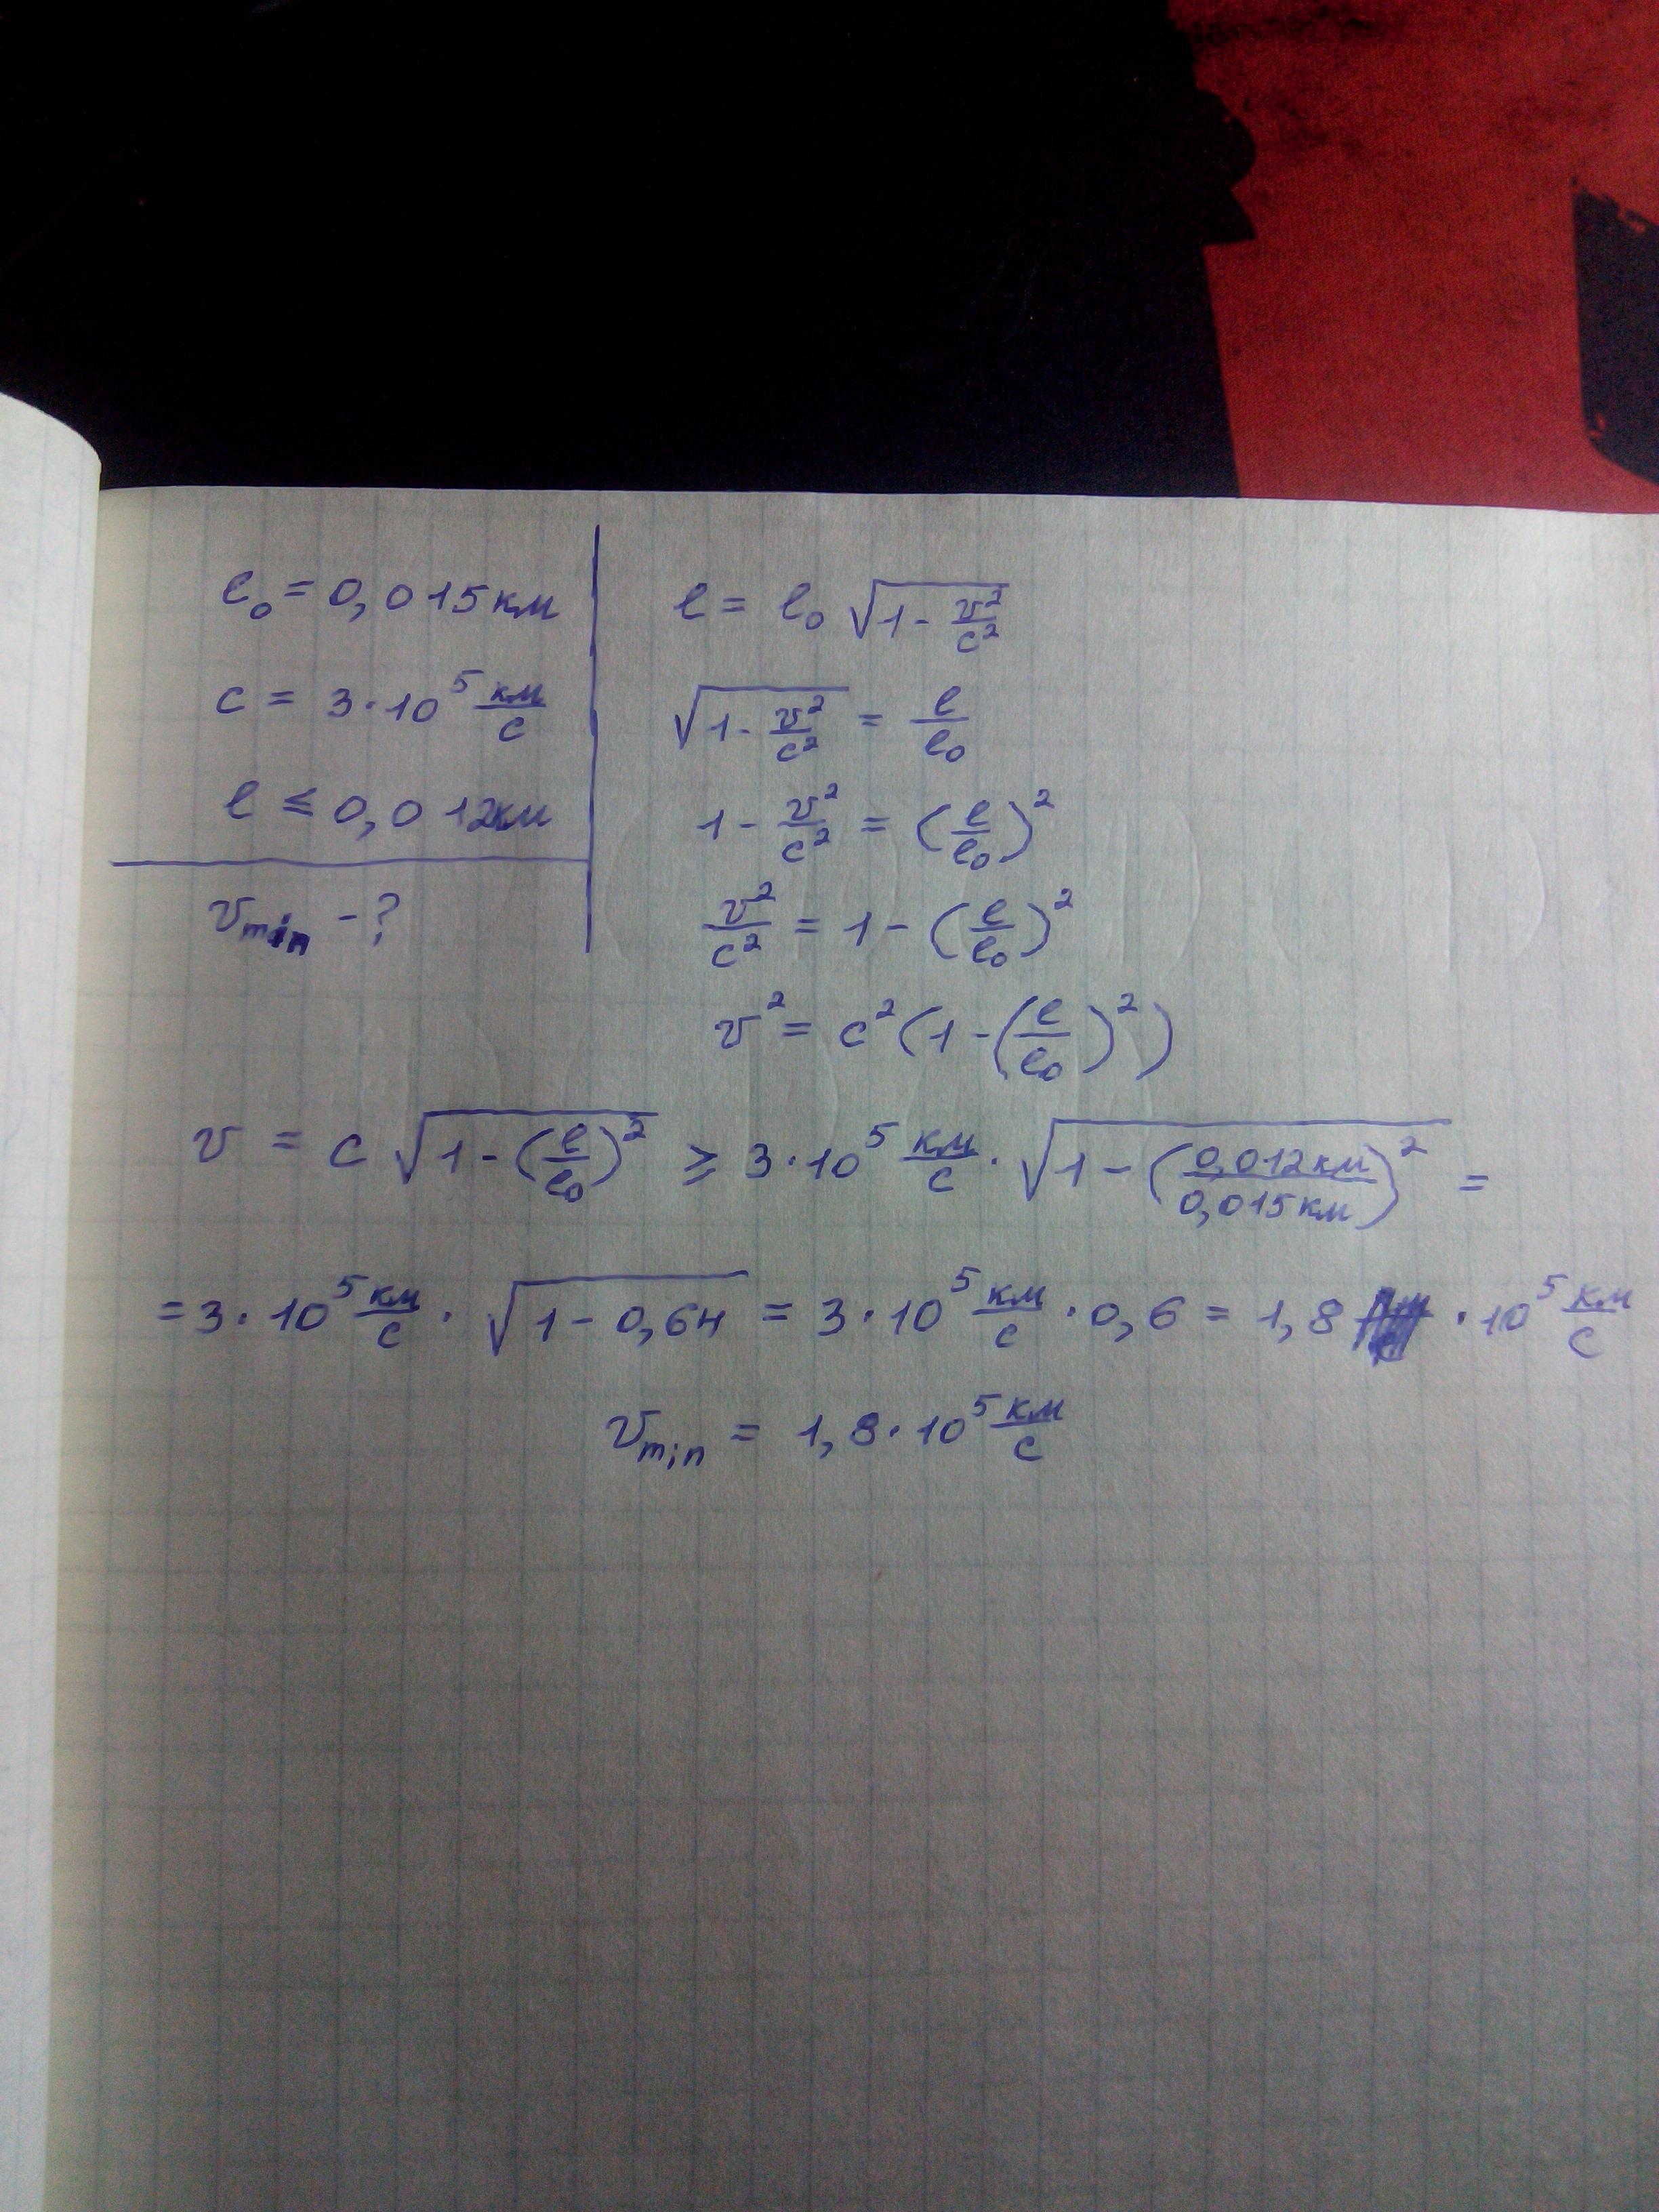 l₀ = 0,015 км
c = 3·10⁵ км/с
l ≤ 0,012 км
v_min - ?
l = l₀ √(1 - v²/c²)
√(1 - v²/c²) = l/l₀
1 - v²/c² = (l/l₀)²
v²/c² = 1 - (l/l₀)²
v² = c² (1 - (l/l₀)²)
v = c √(1 - (l/l₀)²) ≥ 3·10⁵ км/с · √(1 - (0,012 км/0,015 км)²) =
= 3·10⁵ км/с · √(1 - 0,64) = 3·10⁵ км/с · 0,6 = 1,8 · 10⁵ км/с
v_min = 1,8·10⁵ км/с